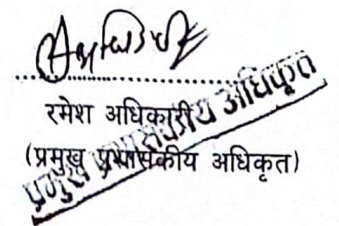 रमेश अधिकारी
(प्रमुख प्रशासकीय अधिकृत)
प्रमुख प्रशासकीय अधिकृत